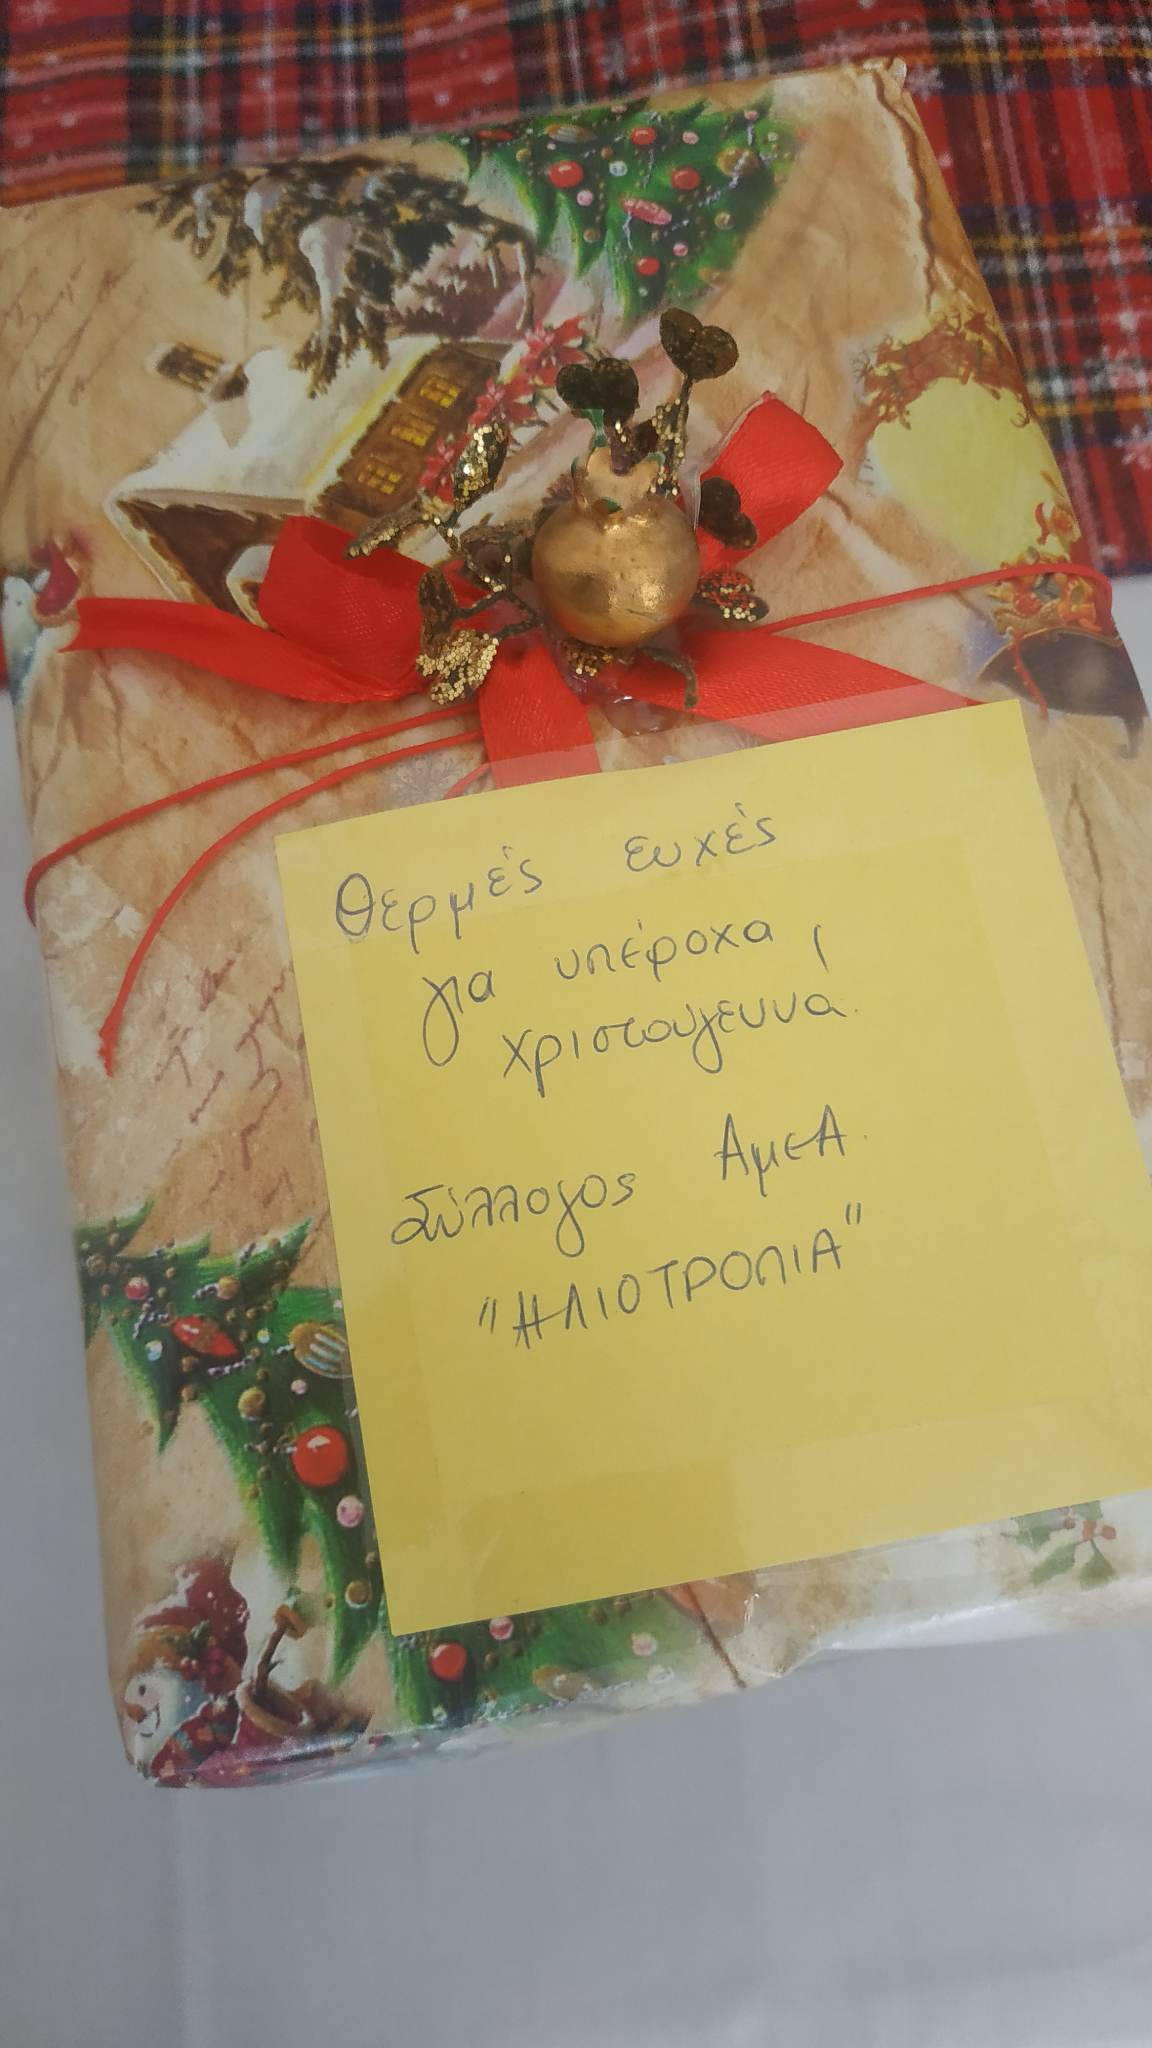 Θερμές ευχές
για υπέροχα
Χριστούγεννα
Σύλλογος ΑμεΑ
"ΗΛΙΟΤΡΟΠΙΑ"